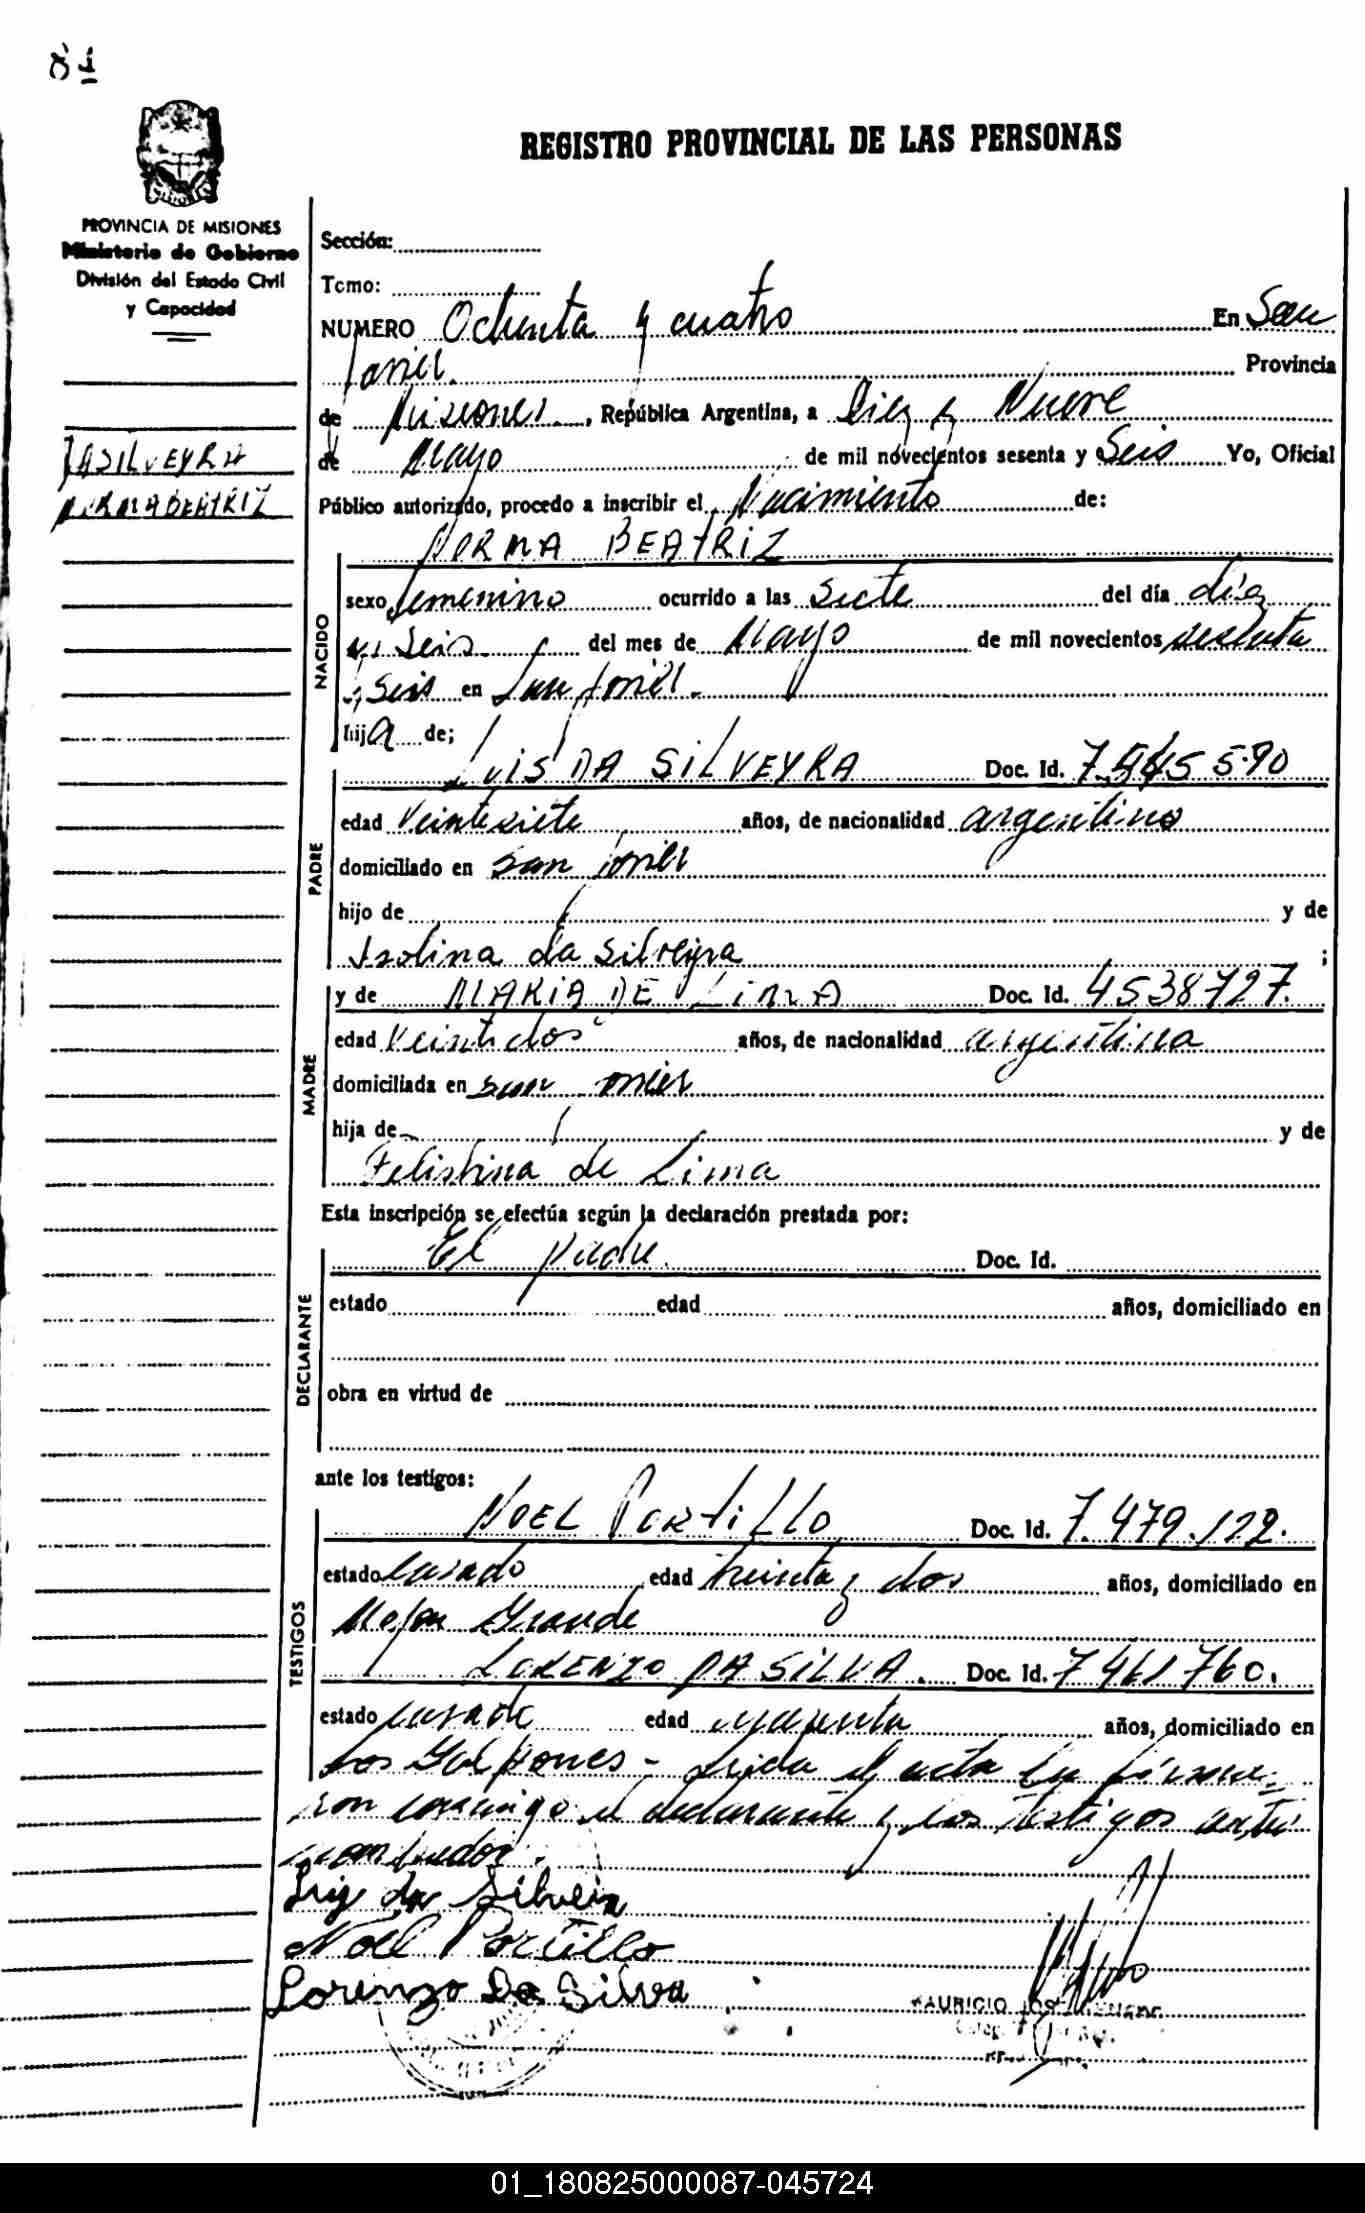 84
REGISTRO PROVINCIAL DE LAS PERSONAS
PROVINCIA DE MISIONES
Ministerio de Gobierno
División del Estado Civil
y Capacidad
DA SILVEYRA
NORMA BEATRIZ
Sección:
Tomo:
NUMERO Ochenta y cuatro En San
Javier. Provincia
de Misiones, República Argentina, a Diez y Nueve
de Mayo de mil novecientos sesenta y Seis Yo, Oficial
Público autorizado, procedo a inscribir el Nacimiento de:
NORMA BEATRIZ
NACIDO
sexo femenino ocurrido a las Siete del día diez
y Seis del mes de Mayo de mil novecientos sesenta
y Seis en San Javier.
hija de;
LUIS DA SILVEYRA Doc. Id. 7.545590
PADRE
edad Veintisiete años, de nacionalidad argentino
domiciliado en San Javier
hijo de y de
Isolina da Silveyra ;
MADRE
y de MARIA DE LIMA Doc. Id. 4538727.
edad Veintidos años, de nacionalidad argentina
domiciliada en San Javier
hija de y de
de Lima
Esta inscripción se efectúa según la declaración prestada por:
DECLARANTE
El padre. Doc. Id.
estado edad años, domiciliado en
obra en virtud de
ante los testigos:
TESTIGOS
NOEL PORTILLO Doc. Id. 7.479.122.
estado casado edad treinta y dos años, domiciliado en
Mojon Grande
LORENZO DA SILVA. Doc. Id. 7461760.
estado casado edad cuarenta años, domiciliado en
Los Galpones - Leida el acta la firma-
ron conmigo el declarante y los testigos ante
nombrados.
da Silveira
Noel Portillo
Lorenzo Da Silva
MAURICIO
01_180825000087-045724